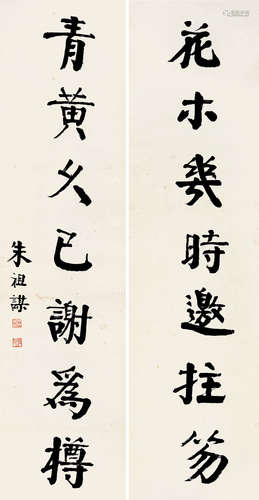 花木幾時邀拄笏
青黃久已謝為樽
朱祖謀